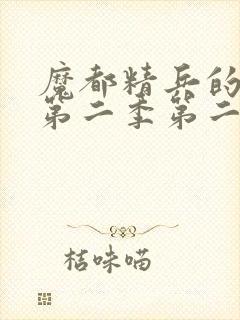 魔都精兵的
第二季第二
桔味喵